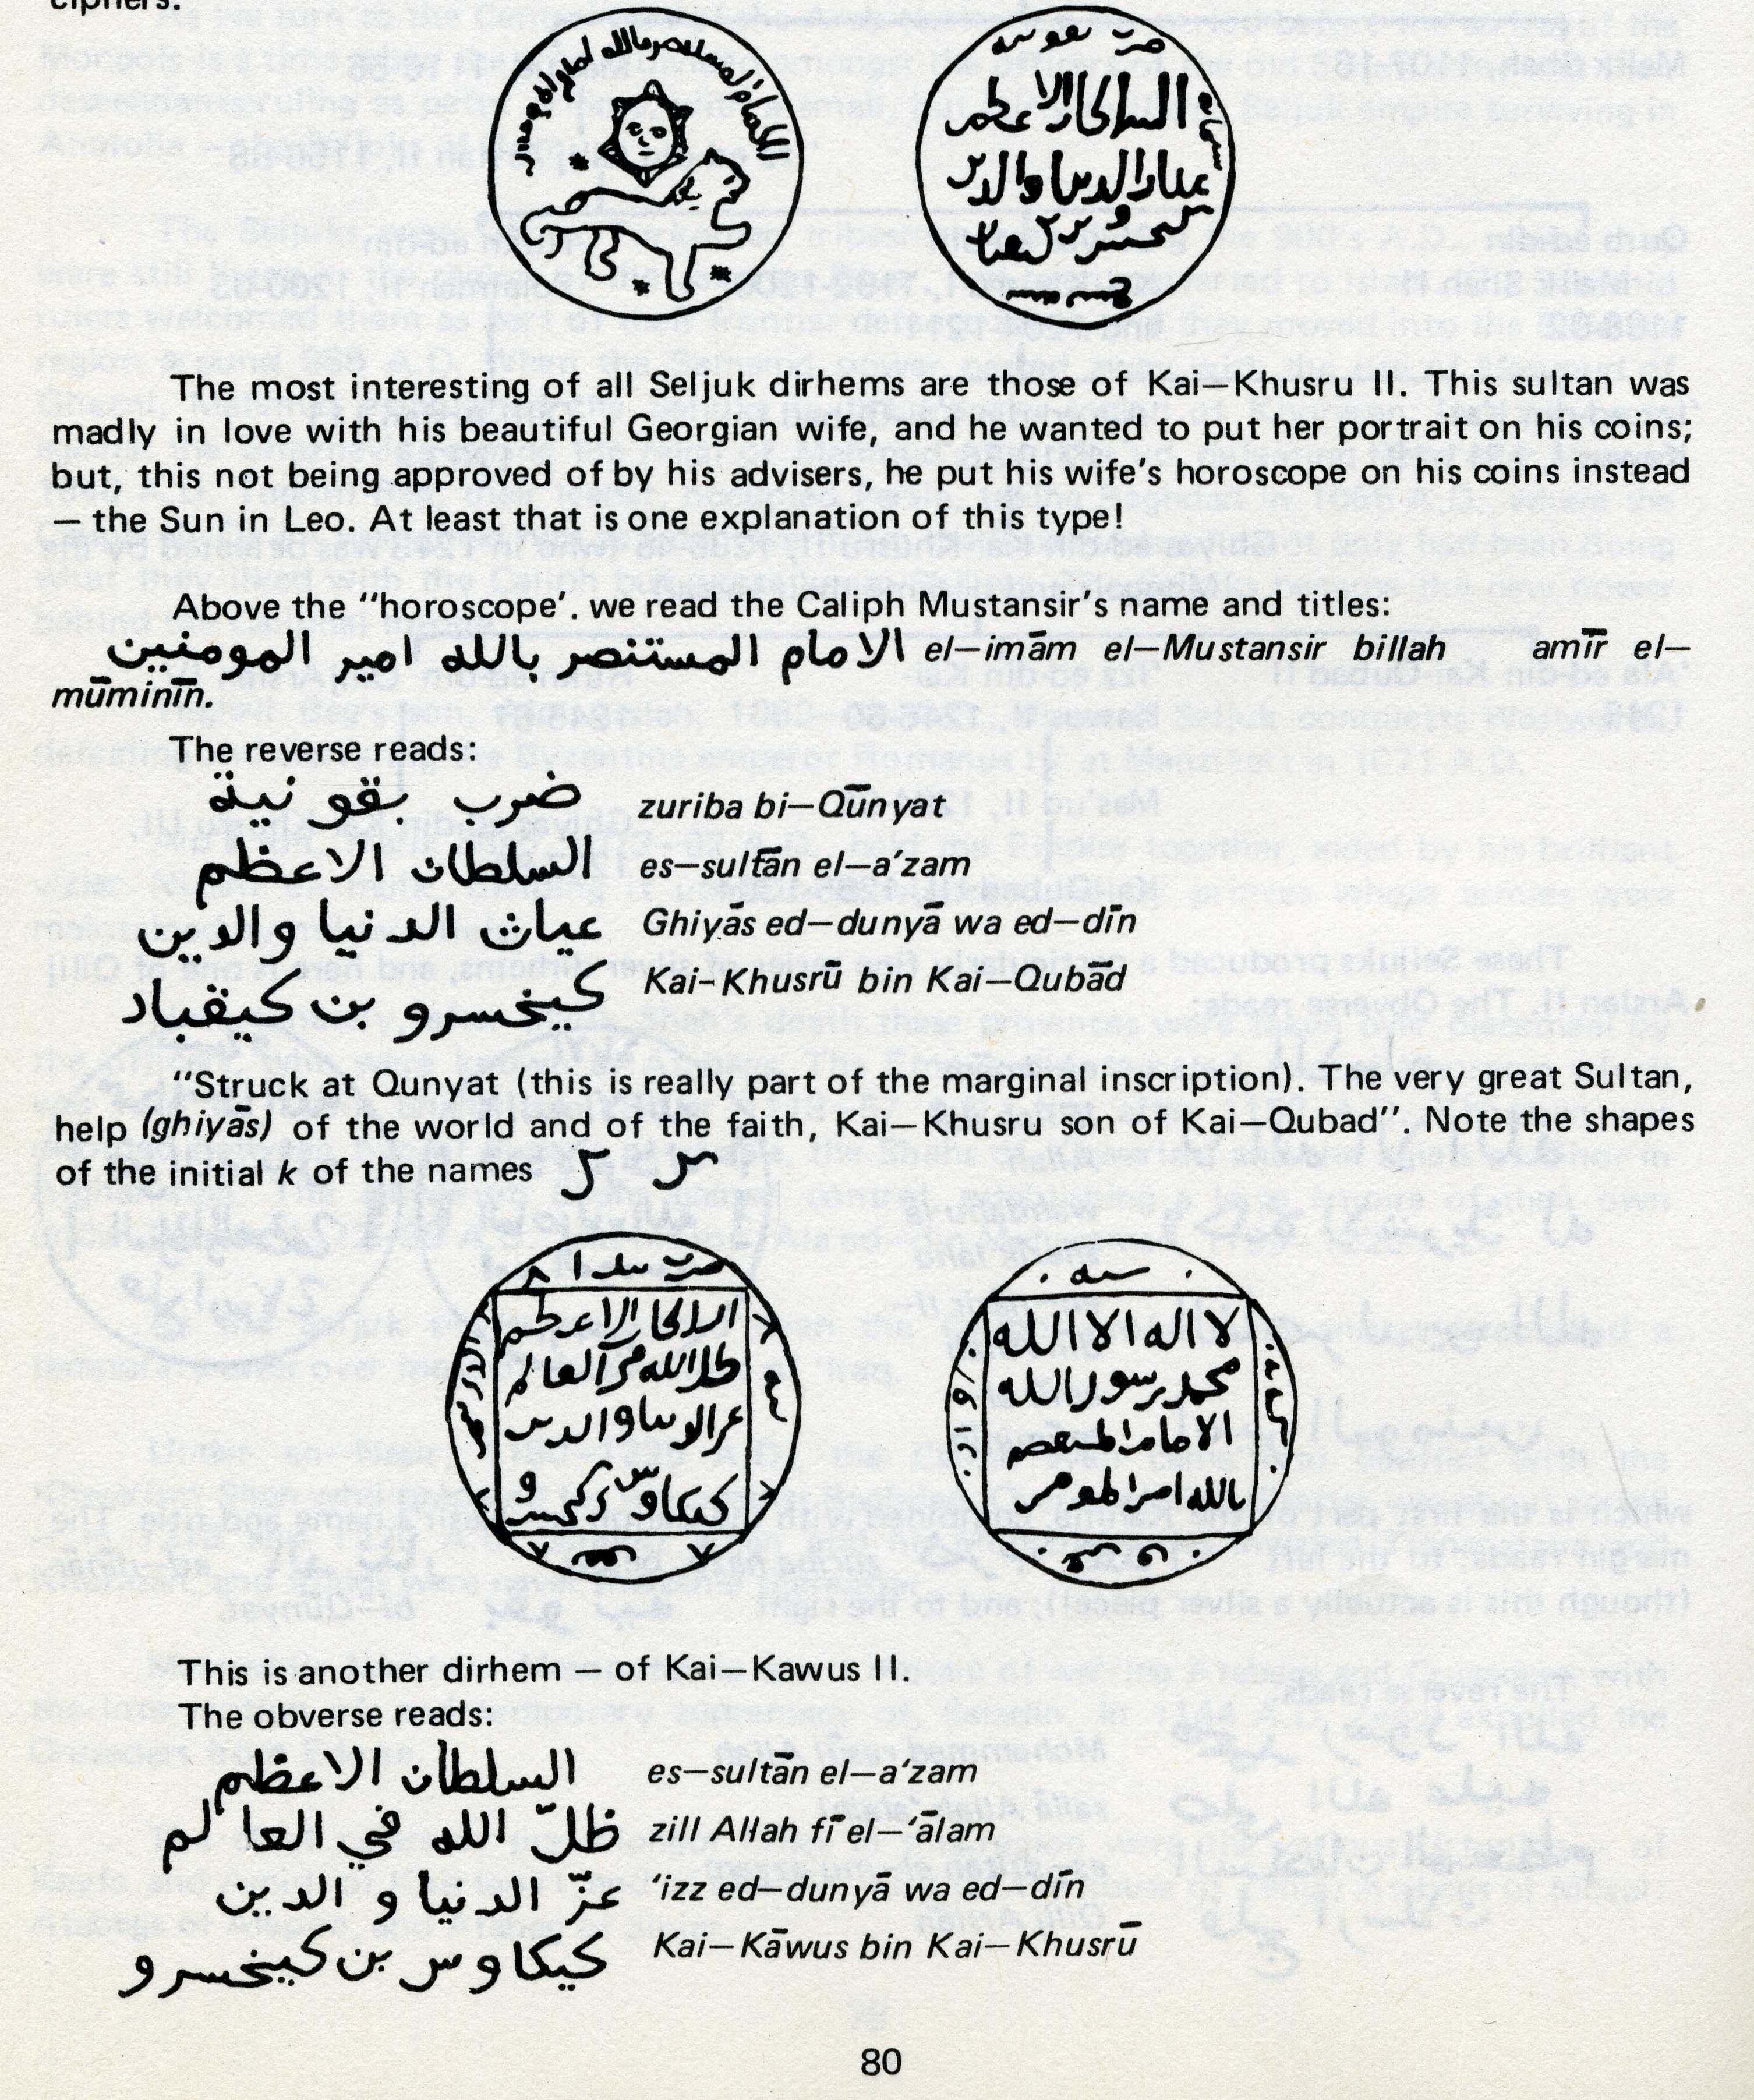 ciphers.
The most interesting of all Seljuk dirhems are those of Kai–Khusru II. This sultan was
madly in love with his beautiful Georgian wife, and he wanted to put her portrait on his coins;
but, this not being approved of by his advisers, he put his wife's horoscope on his coins instead
— the Sun in Leo. At least that is one explanation of this type!
Above the "horoscope'. we read the Caliph Mustansir's name and titles:
الامام المستنصر بالله امير المومنين el–imām el–Mustansir billah amīr el–
mūminīn.
The reverse reads:
ضرب بقونية zuriba bi–Qūnyat
السلطان الاعظم es–sultān el–a'zam
عياث الدنيا والدين Ghiyās ed–dunyā wa ed–dīn
كيخسرو بن كيقباد Kai–Khusrū bin Kai–Qubād
"Struck at Qunyat (this is really part of the marginal inscription). The very great Sultan,
help (ghiyās) of the world and of the faith, Kai–Khusru son of Kai–Qubad". Note the shapes
of the initial k of the names
لا اله الا الله
This is another dirhem – of Kai–Kawus II.
The obverse reads:
السلطان الاعظم es–sultān el–a'zam
ظلّ الله في العالم zill Allah fī el–'ālam
عزّ الدنيا و الدين 'izz ed–dunyā wa ed–dīn
كيكاوس بن كيخسرو Kai–Kāwus bin Kai–Khusrū
80